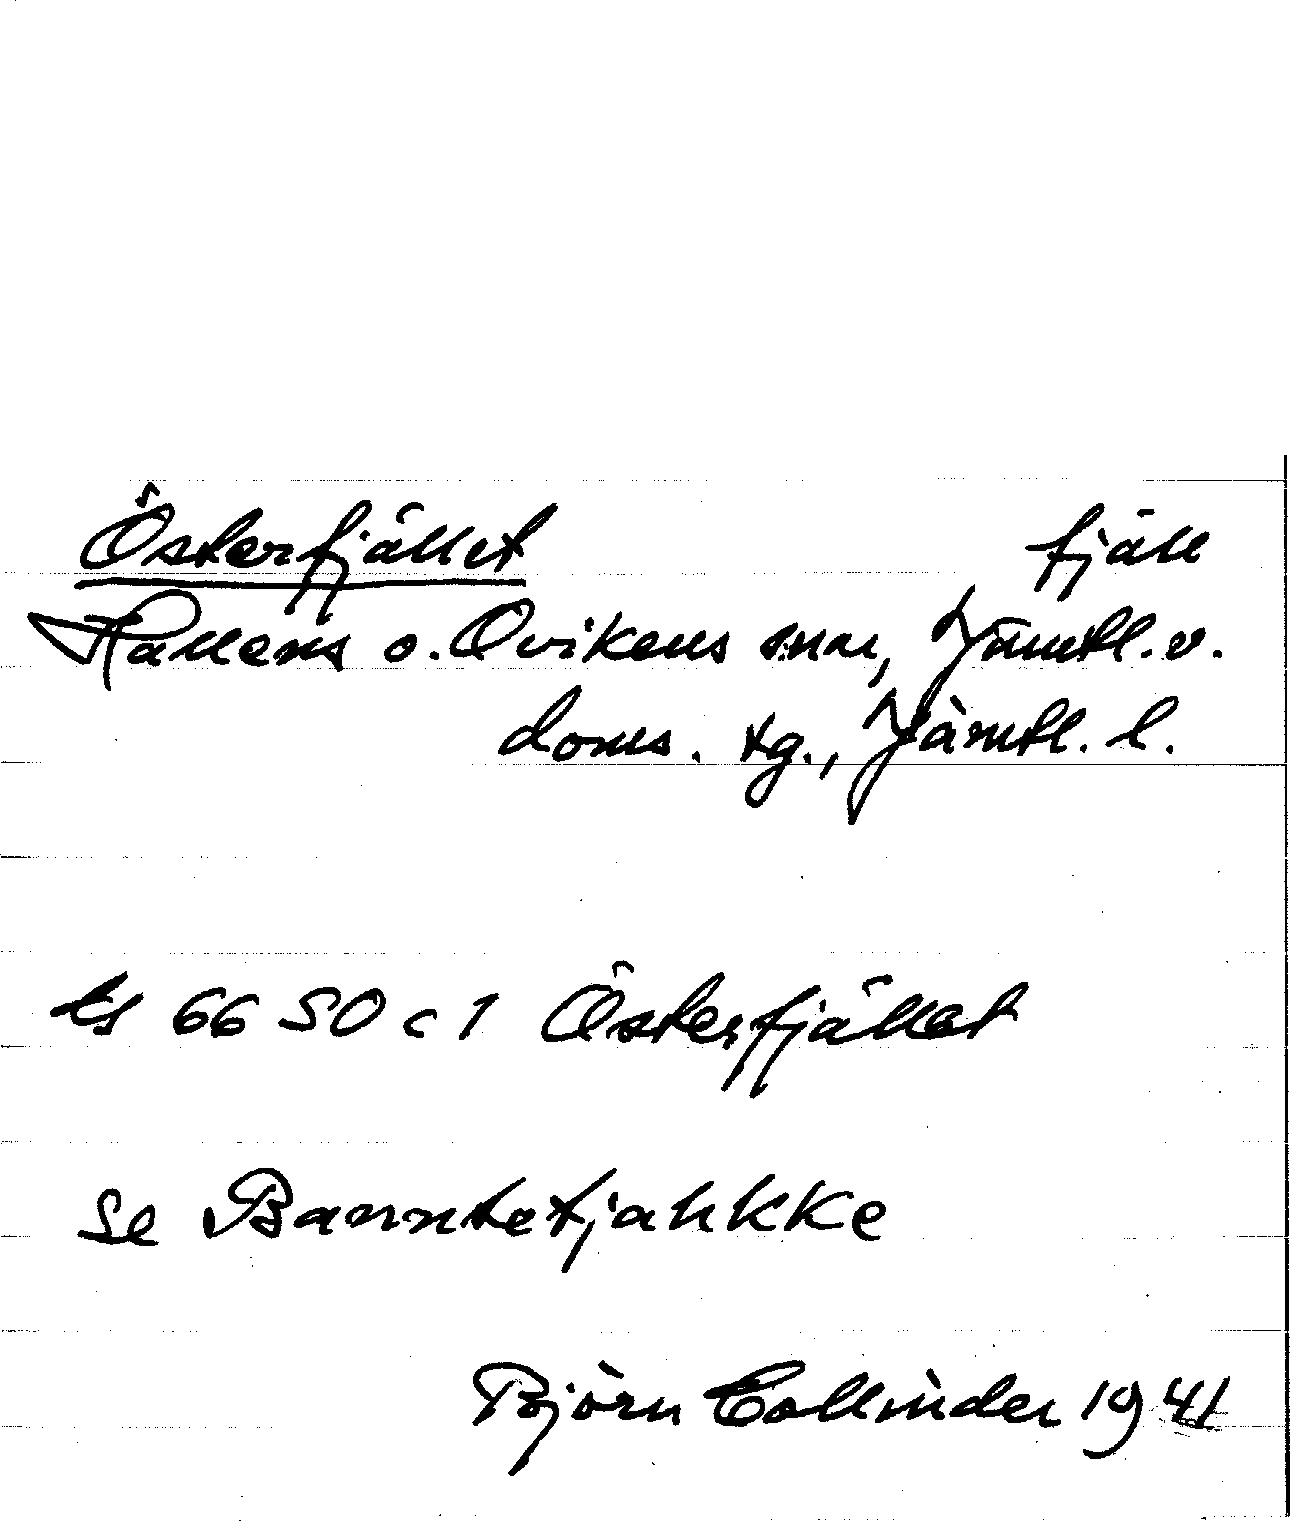 Österfjället fjäll
Hallens o. Ovikens snar, Jämtl. v.
doms. tg., Jämtl. l.
ts 66 SO c 1 Österfjället
se Banntetjahkke
Björn Collinder 1941